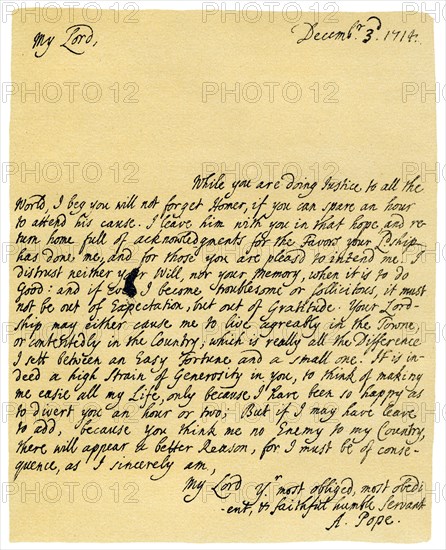 Decemb.r 3.d 1714.
My Lord,
While you are doing Justice to all the
World, I beg you will not forget Homer, if you can spare an hour
to attend his cause. I leave him with you in that hope, and re-
turn home full of acknowledgments for the Favors your Lship
has done me, and for those you are pleasd to intend me. I
distrust neither your Will, nor your Memory, when it is to do
Good: and if ever I become troublesome or sollicitous, it must
not be out of Expectation, but out of Gratitude. Your Lord-
ship may either cause me to live agreably in the Towne,
or contentedly in the Country; which is really all the Difference
I sett between an Easy Fortune and a small one. It is in-
deed a high Strain of Generosity in you, to think of making
me easie all my Life, only because I have been so happy as
to divert you an hour or two; But if I may have leave
to add, because you think me no Enemy to my Country,
there will appear a better Reason, for I must be of conse-
quence, as I sincerely am,
My Lord Y.r most obliged, most obedi-
ent, & faithful humble Servant
A. Pope.
PHOTO12